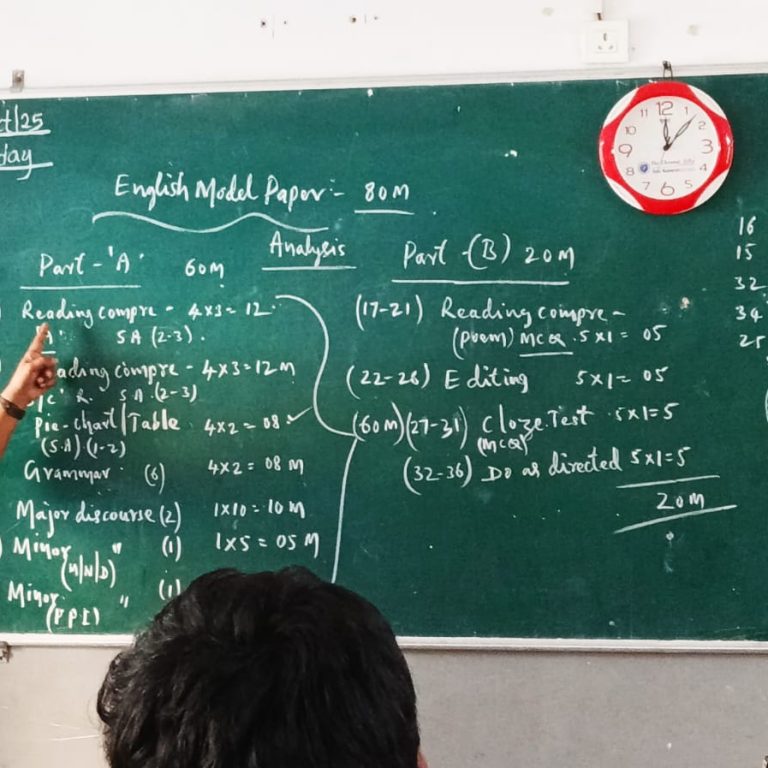 t/25
day
English Model Paper :- 80M
Analysis
Part - 'A' 60M
Reading compre - 4x3 = 12
'A' SA (2-3).
ading compre - 4x3 = 12M
SA.(2-3)
Pie-chart/Table 4x2 = 08
(SA) (1-2)
Grammar (6) 4x2 = 08 M
Major discourse (2) 1x10 = 10 M
Minor " (1) 1x5 = 05 M
Minor " (1)
(60M)
Part - (B) 20M
(17-21) Reading compre -
(poem) MCQ .5x1 = 05
(22-26) Editing 5x1 = 05
(27-31) Cloze Test 5x1=5
(MCQ)
(32-36) Do as directed 5x1=5
20M
16
15
32
34
25
12
1
2
3
4
5
6
7
8
9
10
11